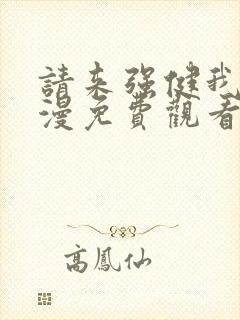 請来强健我
漫免費觀看
高鳳仙